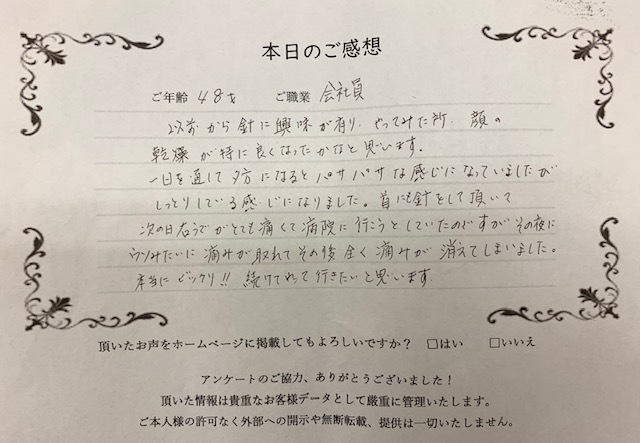 本日のご感想
ご年齢 48才 ご職業 会社員
以前から針に興味が有り、やってみた所、顔の
乾燥が特に良くなったかなと思います。
一日を通して夕方になるとパサパサな感じになっていましたが
しっとりしている感じになりました。首にも針をして頂いて
次の日右うでがとても痛くて病院に行こうとしていたのですがその夜に
ウソみたいに痛みが取れてその後全く痛みが消えてしまいました。
本当にビックリ!! 続けて行きたいと思います。
頂いたお声をホームページに掲載してもよろしいですか? □はい □いいえ
アンケートのご協力、ありがとうございました!
頂いた情報は貴重なお客様データとして厳重に管理いたします。
ご本人様の許可なく外部への開示や無断転載、提供は一切いたしません。